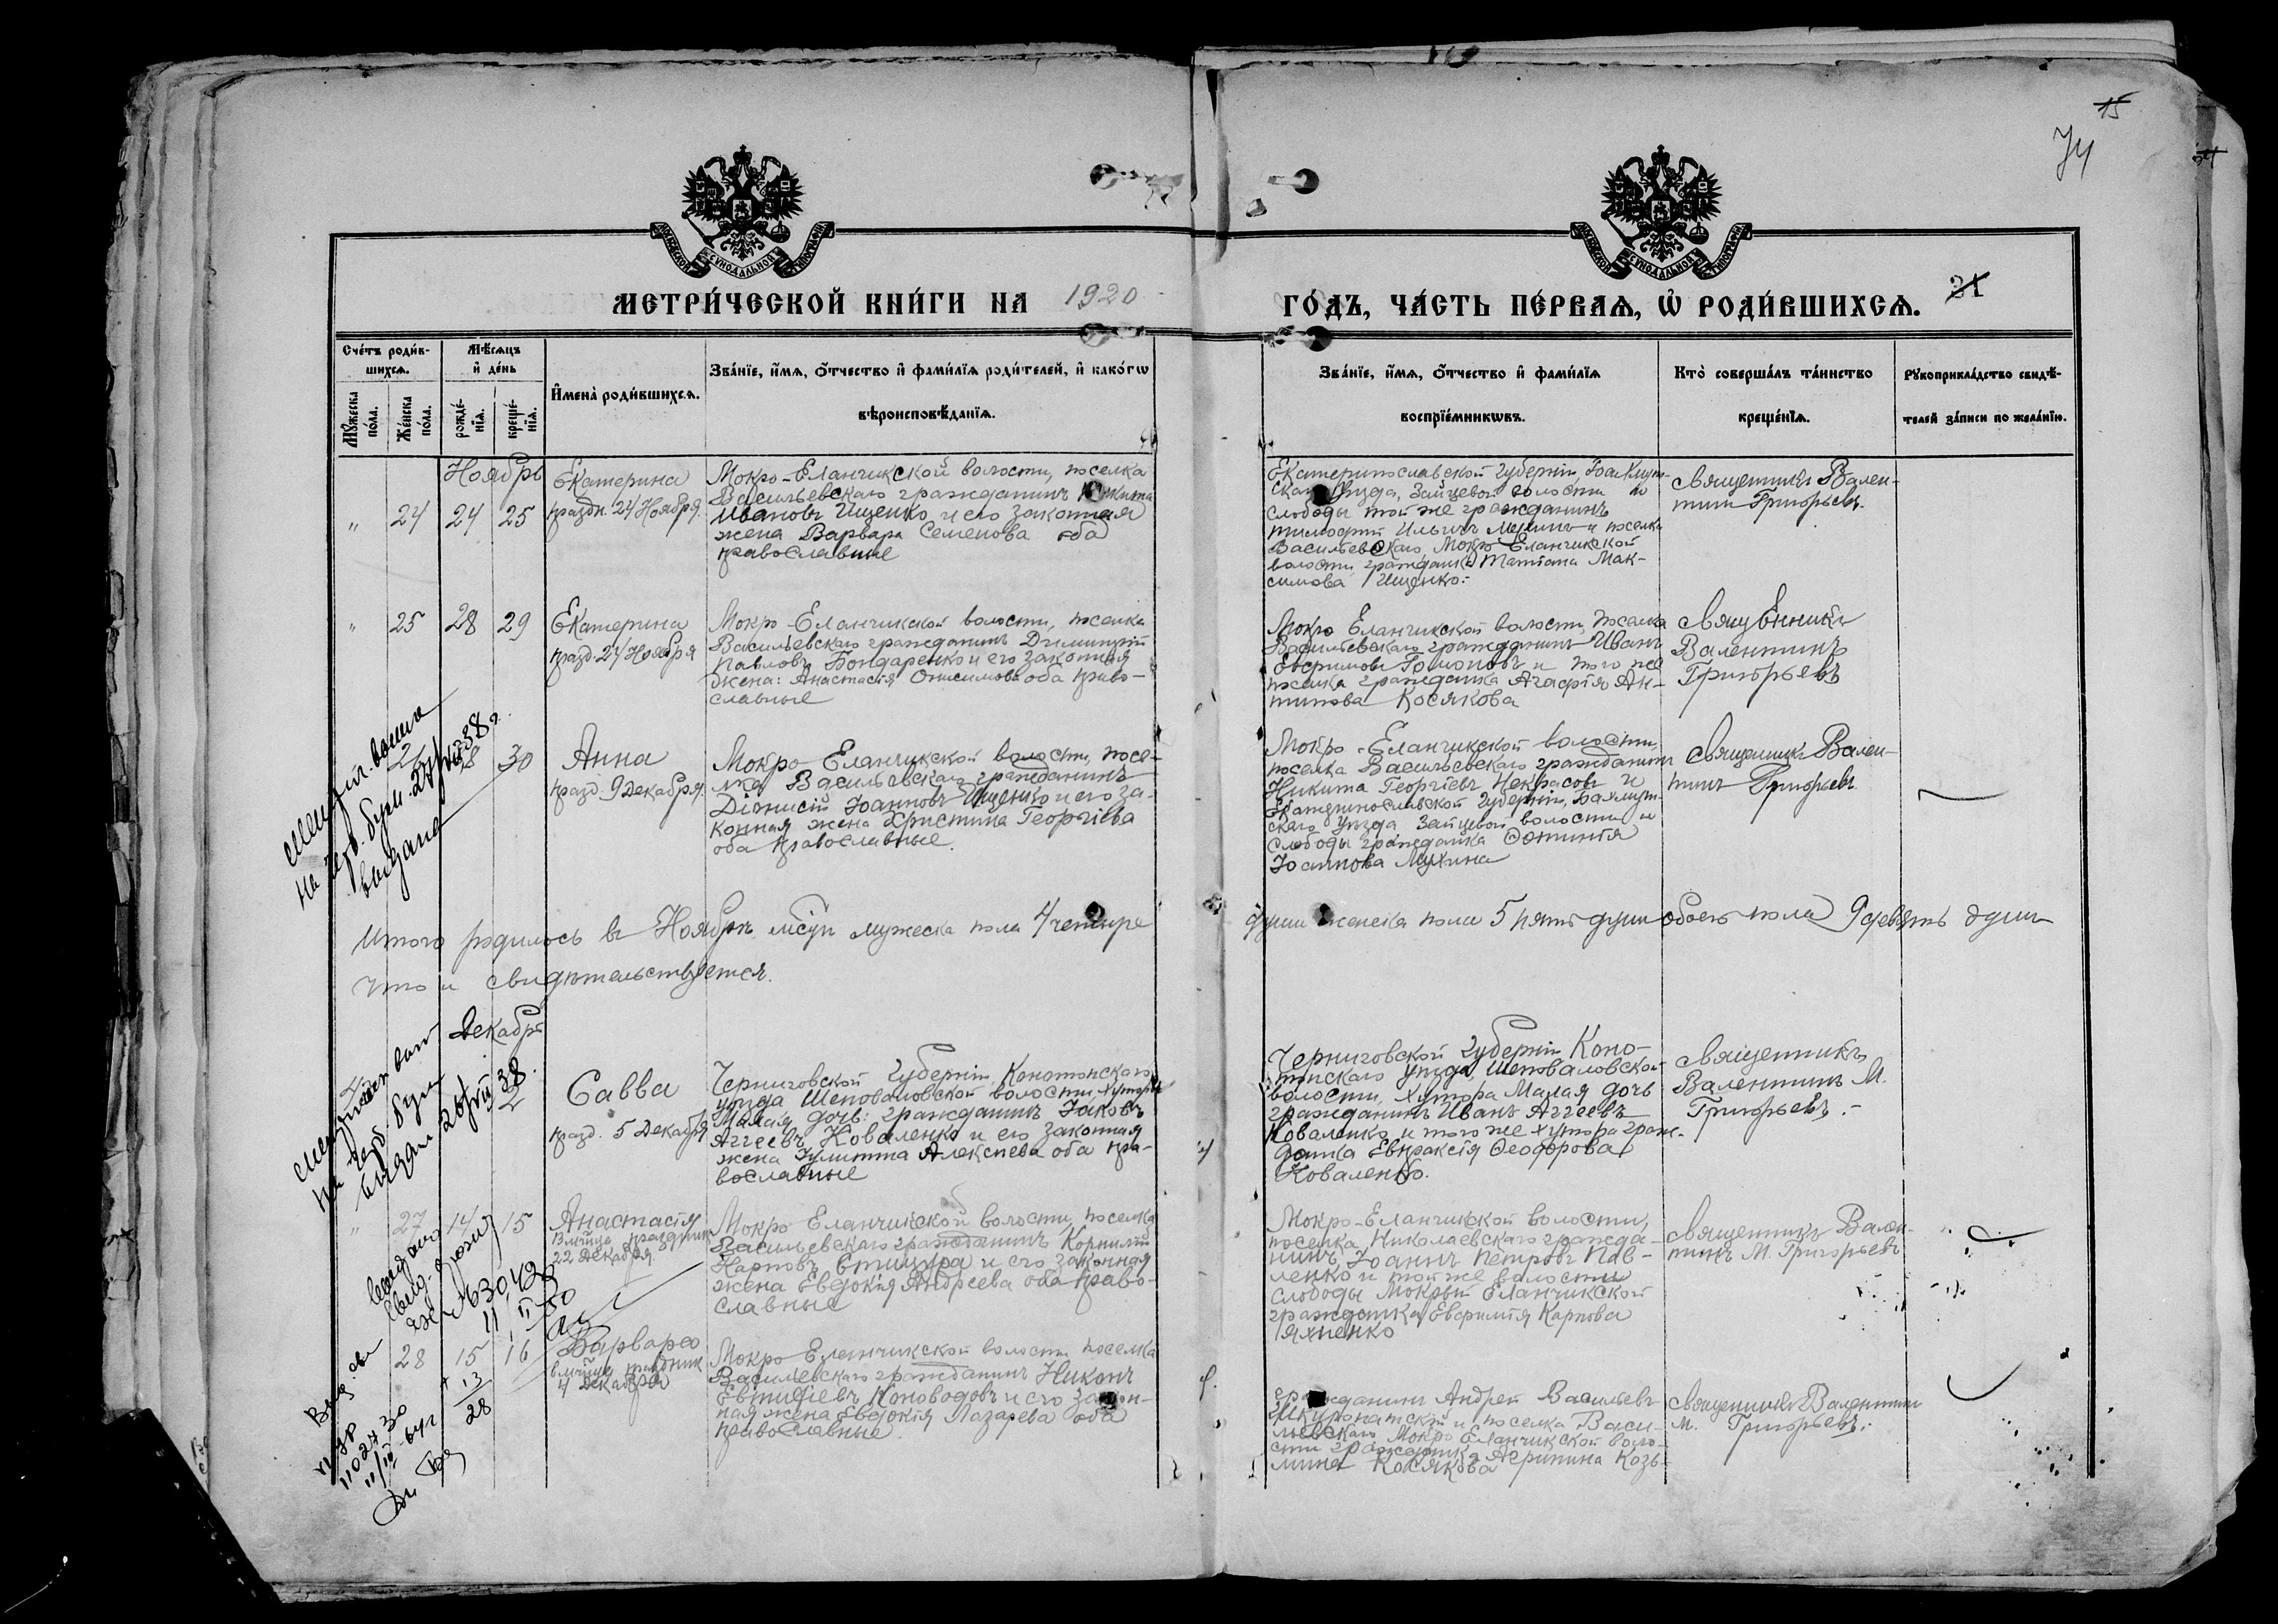 15
74
МЕТРИ́ЧЕСКОЙ КНИ́ГИ НА 1920
ГО́ДЪ, ЧА́СТЬ ПЕ́РВАЯ, Ѡ҆ РОДИ́ВШИХСѦ. 21
Сче́тъ роди́в-
шихсѧ.
Мѣ́сѧцъ
и҆ де́нь
Мꙋ́жеска
по́ла.
Же́нска
по́ла.
рожде́-
нїѧ.
креще́-
нїѧ.
И҆мена̀ роди́вшихсѧ.
Зва́нїе, и҆́мѧ, ѻ҆́тчество и҆ фами́лїѧ роди́телей, и҆ како́гѡ
вѣроисповѣ́данїѧ.
Зва́нїе, и҆́мѧ, ѻ҆́тчество и҆ фами́лїѧ
воспрїе́мникѡвъ.
Кто̀ соверша́лъ та́инство
креще́нїѧ.
Рꙋкоприкла́дство свидѣ́-
телей за́писи по жела́нїю.
Ноябрь
„ 24 24 25
Екатерина
празdн. 24 Ноября.
Мокро-Еланчикской волости, поселка
Васильевскаго гражданинъ Никита
Ивановъ Ищенко и его законная
жена Варвара Семенова оба
православные
Екатеринославской губерніи, Бахмут-
скаго уѣзда, Зайцевой волости и
слободы той же гражданинъ
Тимофей Ильичъ Мухинъ и поселка
Васильевскаго, Мокро Еланчикской
волости, гражданка Татіана Мак-
симова Ищенко.-
Священникъ Вален-
тинъ Григорьевъ.
„ 25 28 29
Екатерина
празд. 24 Ноября
Мокро Еланчикской волости, поселка
Васильевскаго гражданинъ Димитрій
Павловъ Бондаренко и его законная
жена: Анастасія Онисимова оба право-
славные
Мокро Еланчикской волости, поселка
Васильевскаго гражданинъ Иванъ
Ефримовъ Гомоновъ и того же
поселка гражданка Агафія Ан-
типова Косякова
Священникъ
Валентинъ
Григорьевъ
26 28 30
Анна
празд. 9 Декабря.
Мокро Еланчикской волости, посел-
лка Васильевскаго гражданинъ
Діонисій Іоанновъ Ищенко и его за-
конная жена Христина Георгіева
оба православные.
Мокро-Еланчикской волости,
поселка Васильевскаго гражданинъ
Никита Георгіевъ Некрасовъ и
Екатеринославской губерніи, Бахмут-
скаго уѣзда Зайцевой волости и
слободы гражданка Фотинія
Іоаннова Мухина
Священникъ Вален-
тинъ Григорьевъ
Итого родилось въ Ноябрѣ мѣсяцѣ мужеска пола 4 четыре
души женска пола 5 пять душъ обоего пола 9 девять душъ
что и свидѣтельствуется.
Декабрь
Савва
празд. 5 Декабря
Черниговской губерніи, Конотопскаго
уѣзда Шеповаловской волости, хутора
Малая дочь: гражданинъ Іаковъ
Аггеевъ Коваленко и его законная
жена Іулитта Алексѣева оба пра-
вославные
Черниговской губерніи Коно-
топскаго уѣзда, Шеповаловской
волости, хутора Малая дочь
гражданинъ Иванъ Аггеевъ
Коваленко и того же хутора граж-
данка Евпраксія Феодорова
Коваленко.
Священникъ
Валентинъ М.
Григорьевъ.-
„ 27 14 15
Анастасія
22 Декабря
Мокро Еланчикской волости поселка
Васильевскаго гражданинъ Корнилій
Карповъ и его законная
жена Евдокія Андреева оба право-
славные
Мокро-Еланчикской волости,
поселка Николаевскаго гражда-
нинъ Іоаннъ Петровъ Пав-
ленко и той же волости
слободы Мокрый Еланчикской
гражданка Евфимія Карпова
Яхненко
Священникъ Вален-
тинъ М. Григорьевъ
28 15 16
Варвара
4 Декабря
Мокро Еланчикской волости поселка
Васильевскаго гражданинъ Никонъ
Коноводовъ и его закон-
ная жена Евдокія Лазарева оба
православные.
гражданинъ Андрей Васильевъ
и поселка Васи-
льевскаго Мокро Еланчикской воло-
сти гражданка Агрипина Козь-
мина Косякова
Священникъ Валентинъ
М. Григорьевъ.
13
28